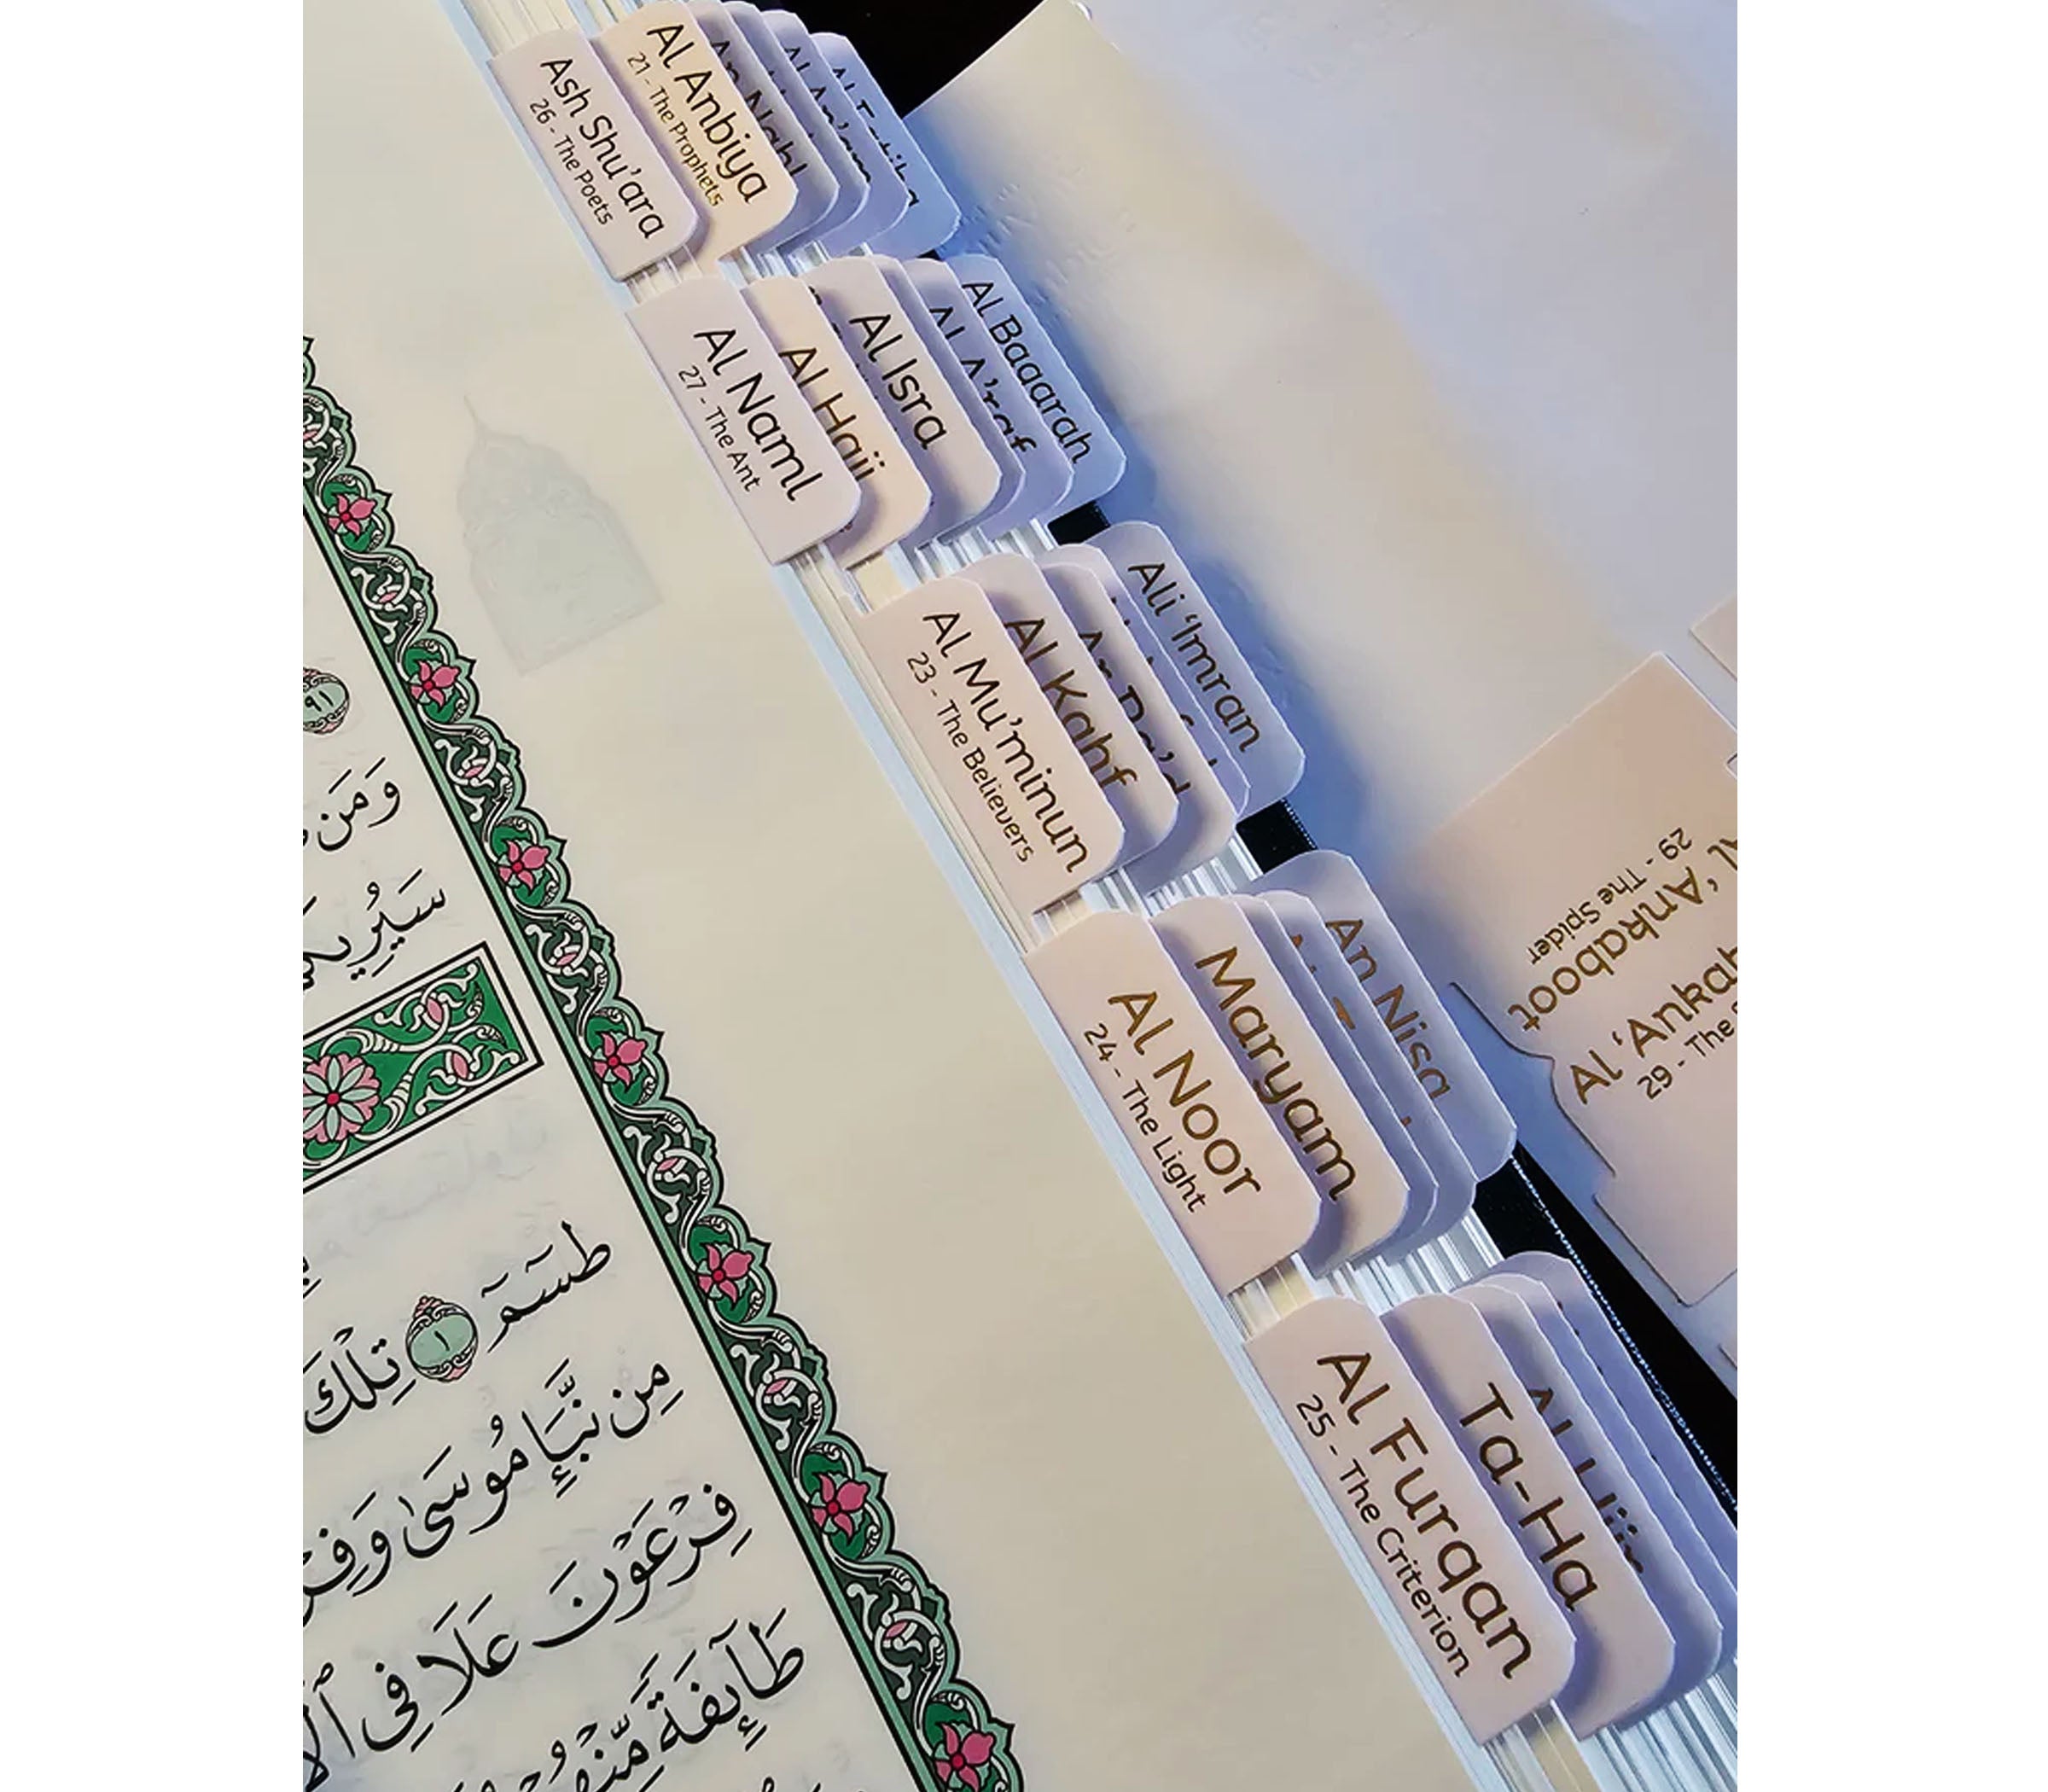 Ash Shu'ara
26 - The Poets
Al Anbiya
21 - The Prophets
Al Naml
27 - The Ant
Al Hajj
Al Isra
Al A'raf
Al Baqarah
Al Mu'minun
23 - The Believers
Al Kahf
Ar Ra'd
Ali 'Imran
Al Noor
24 - The Light
Maryam
An Nisa
Al Furqan
25 - The Criterion
Ta-Ha
Al Hijr
Al 'Ankaboot
29 - The Spider
29 - The
٩١
وَمَن
طسٓمٓ ١ تِلْكَ
مِن نَّبَإِ مُوسَىٰ وَفِرْ
فِرْعَوْنَ عَلَا فِى ٱلْأَ
طَآئِفَةً مِّنْهُمْ